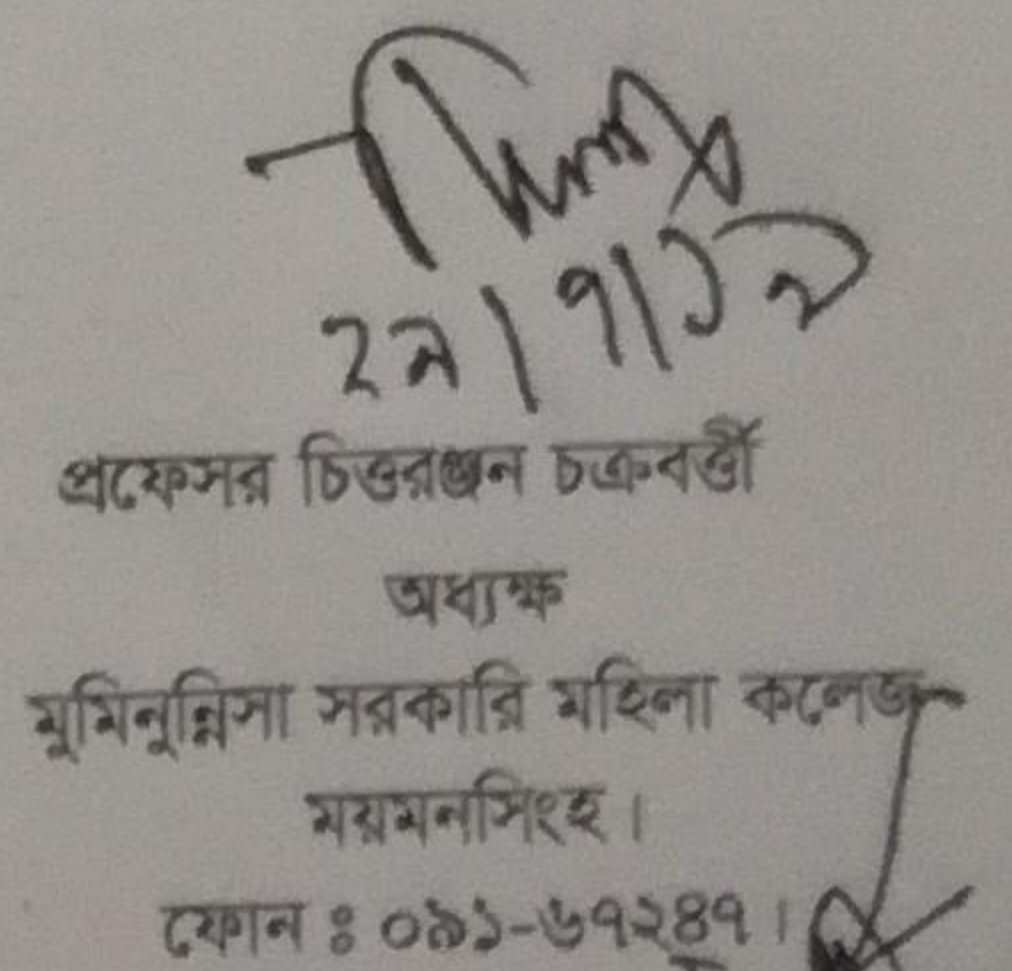 প্রফেসর চিত্তরঞ্জন চক্রবর্ত্তী
অধ্যক্ষ
মুমিনুন্নিসা সরকারি মহিলা কলেজ
ময়মনসিংহ।
ফোন : ০৯১-৬৭২৪৭।